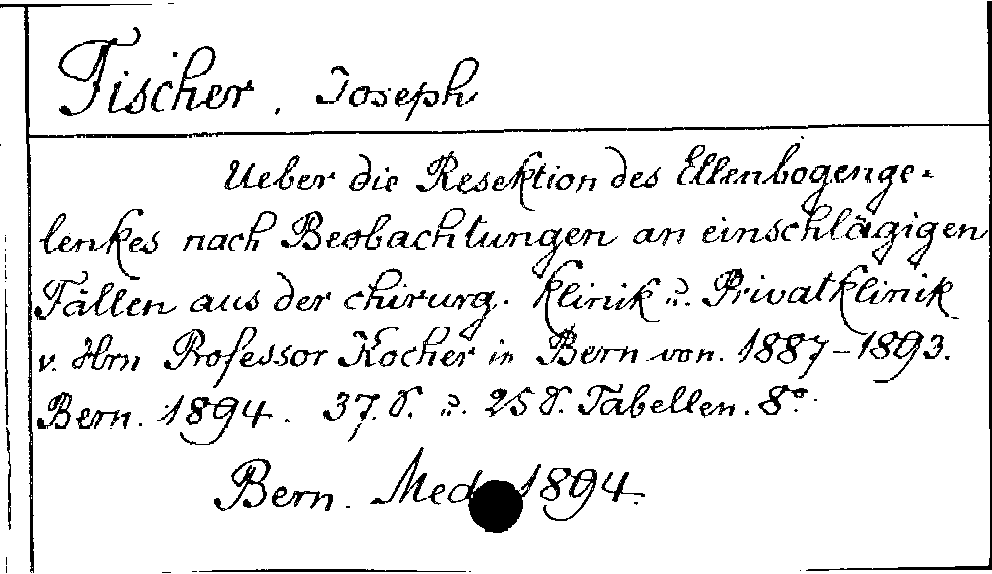 Fischer, Joseph
Ueber die Resektion des Ellenbogenge-
lenkes nach Beobachtungen an einschlägigen
Fällen aus der chirurg. Klinik u. Privatklinik
v. Hrn Professor Kocher in Bern von. 1887-1893.
Bern. 1894. 37.S. u. 25 S. Tabellen. 8°.
Bern. Med 1894.